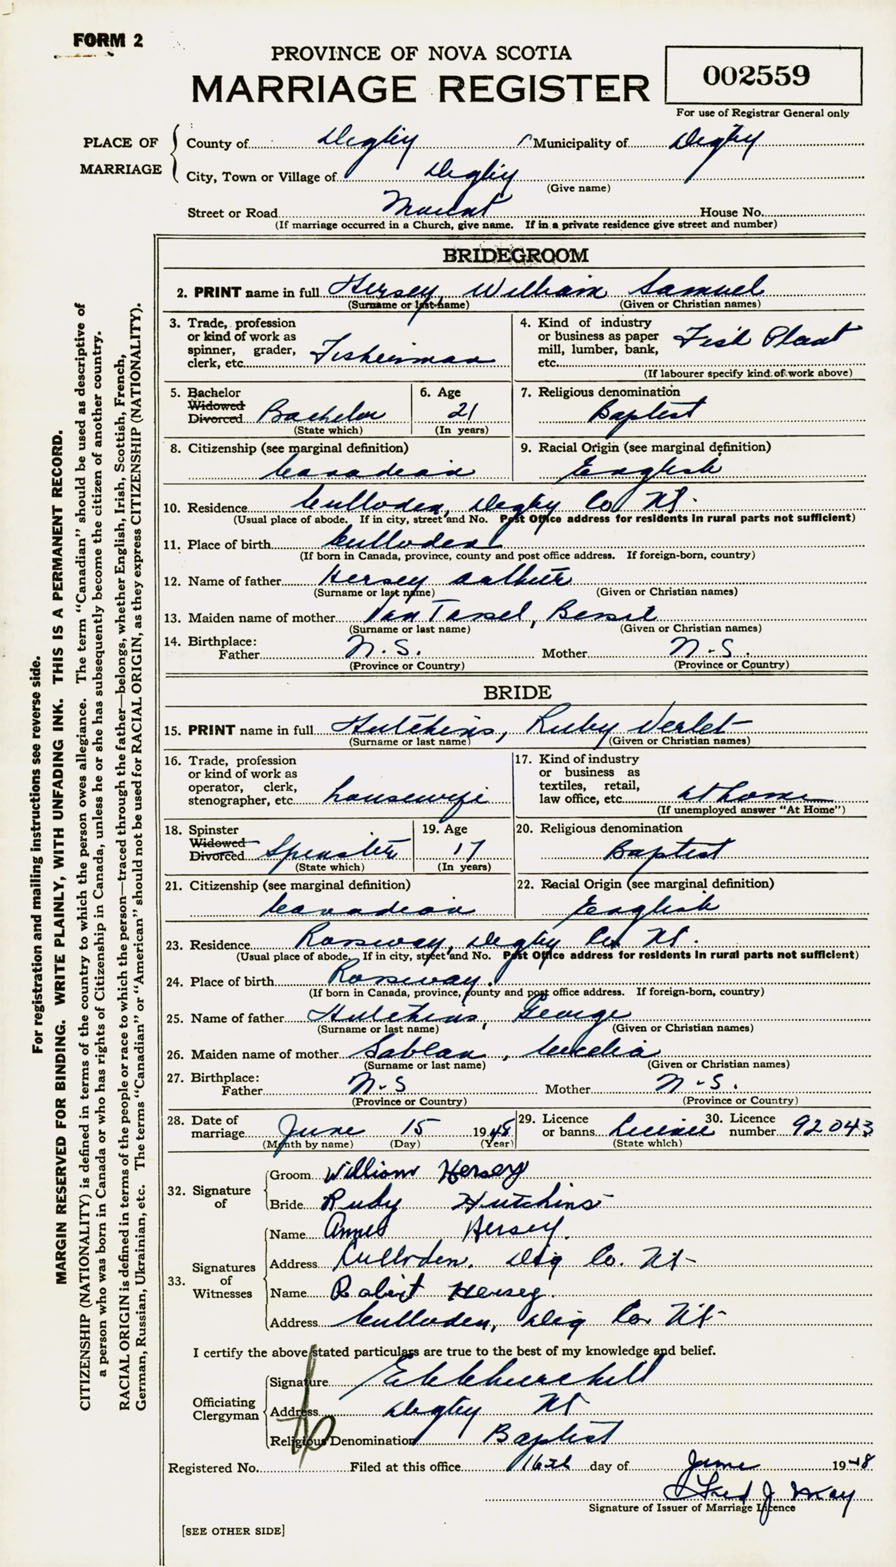 FORM 2
PROVINCE OF NOVA SCOTIA
MARRIAGE REGISTER
002559
For use of Registrar General only
PLACE OF MARRIAGE
County of Digby Municipality of Digby
City, Town or Village of Digby
(Give name)
Street or Road Mount House No.
(If marriage occurred in a Church, give name. If in a private residence give street and number)
BRIDEGROOM
2. PRINT name in full Hersey, William Samuel
(Surname or last name) (Given or Christian names)
3. Trade, profession or kind of work as spinner, grader, clerk, etc. Fisherman
4. Kind of industry or business as paper mill, lumber, bank, etc. Fish Plant
(If labourer specify kind of work above)
5. Bachelor Widowed Divorced Bachelor
(State which)
6. Age 21
(In years)
7. Religious denomination Baptist
8. Citizenship (see marginal definition) Canadian
9. Racial Origin (see marginal definition) English
10. Residence Culloden, Digby Co NS.
(Usual place of abode. If in city, street and No. Post Office address for residents in rural parts not sufficient)
11. Place of birth Culloden
(If born in Canada, province, county and post office address. If foreign-born, country)
12. Name of father Hersey
(Surname or last name) (Given or Christian names)
13. Maiden name of mother VanTassel, Bessie
(Surname or last name) (Given or Christian names)
14. Birthplace:
Father N.S. Mother N.S.
(Province or Country) (Province or Country)
BRIDE
15. PRINT name in full Hutchins, Ruby Verlet
(Surname or last name) (Given or Christian names)
16. Trade, profession or kind of work as operator, clerk, stenographer, etc. housewife
17. Kind of industry or business as textiles, retail, law office, etc. at home
(If unemployed answer "At Home")
18. Spinster Widowed Divorced Spinster
(State which)
19. Age 17
(In years)
20. Religious denomination Baptist
21. Citizenship (see marginal definition) Canadian
22. Racial Origin (see marginal definition) English
23. Residence Rossway, Digby Co. NS.
(Usual place of abode. If in city, street and No. Post Office address for residents in rural parts not sufficient)
24. Place of birth Rossway.
(If born in Canada, province, county and post office address. If foreign-born, country)
25. Name of father Hutchins, George
(Surname or last name) (Given or Christian names)
26. Maiden name of mother Sablan,
(Surname or last name) (Given or Christian names)
27. Birthplace:
Father N.S Mother N.S.
(Province or Country) (Province or Country)
28. Date of marriage June 15 1948
(Month by name) (Day) (Year)
29. Licence or banns License
(State which)
30. Licence number 92043
32. Signature of
Groom William Hersey
Bride Ruby Hutchins
33. Signatures of Witnesses
Name Hersey.
Address Culloden. Dig Co. NS
Name Robert Hersey.
Address Culloden, Dig Co. NS
I certify the above stated particulars are true to the best of my knowledge and belief.
Officiating Clergyman
Signature Churchill
Address Digby NS
Religious Denomination Baptist
Registered No. Filed at this office 16th day of June 1948
Fred J. May
Signature of Issuer of Marriage Licence
[SEE OTHER SIDE]
For registration and mailing instructions see reverse side.
MARGIN RESERVED FOR BINDING. WRITE PLAINLY, WITH UNFADING INK. THIS IS A PERMANENT RECORD.
CITIZENSHIP (NATIONALITY) is defined in terms of the country to which the person owes allegiance. The term "Canadian" should be used as descriptive of
a person who was born in Canada or who has rights of Citizenship in Canada, unless he or she has subsequently become the citizen of another country.
RACIAL ORIGIN is defined in terms of the people or race to which the person—traced through the father—belongs, whether English, Irish, Scottish, French,
German, Russian, Ukrainian, etc. The terms "Canadian" or "American" should not be used for RACIAL ORIGIN, as they express CITIZENSHIP (NATIONALITY).